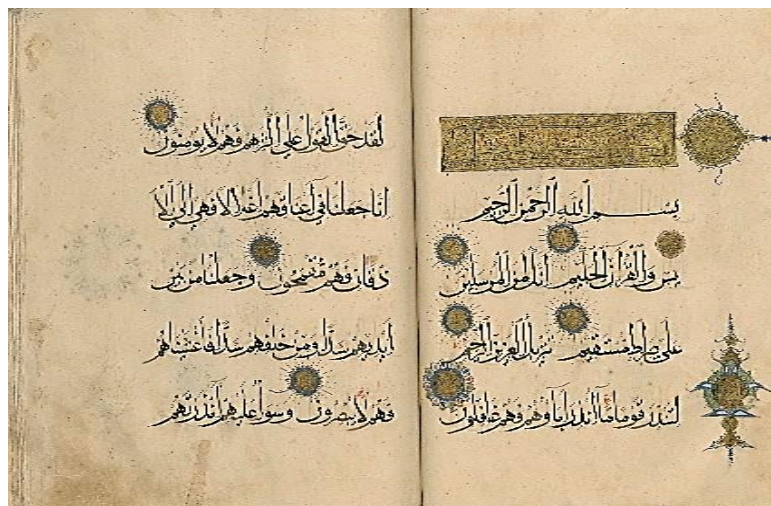 بسم الله الرحمن الرحيم
يس والقران الحكيم انك لمن المرسلين
على صراط مستقيم تنزيل العزيز الرحيم
لتنذر قوما ما انذر اباوهم فهم غافلون
لقد حق القول على اكثرهم فهم لا يومنون
انا جعلنا في اعناقهم اغلالا فهي الى الا
ذقان فهم مقمحون وجعلنا من بين
ايديهم سدا ومن خلفهم سدا فاغشيناهم
فهم لا يبصرون وسوا عليهم اانذرتهم